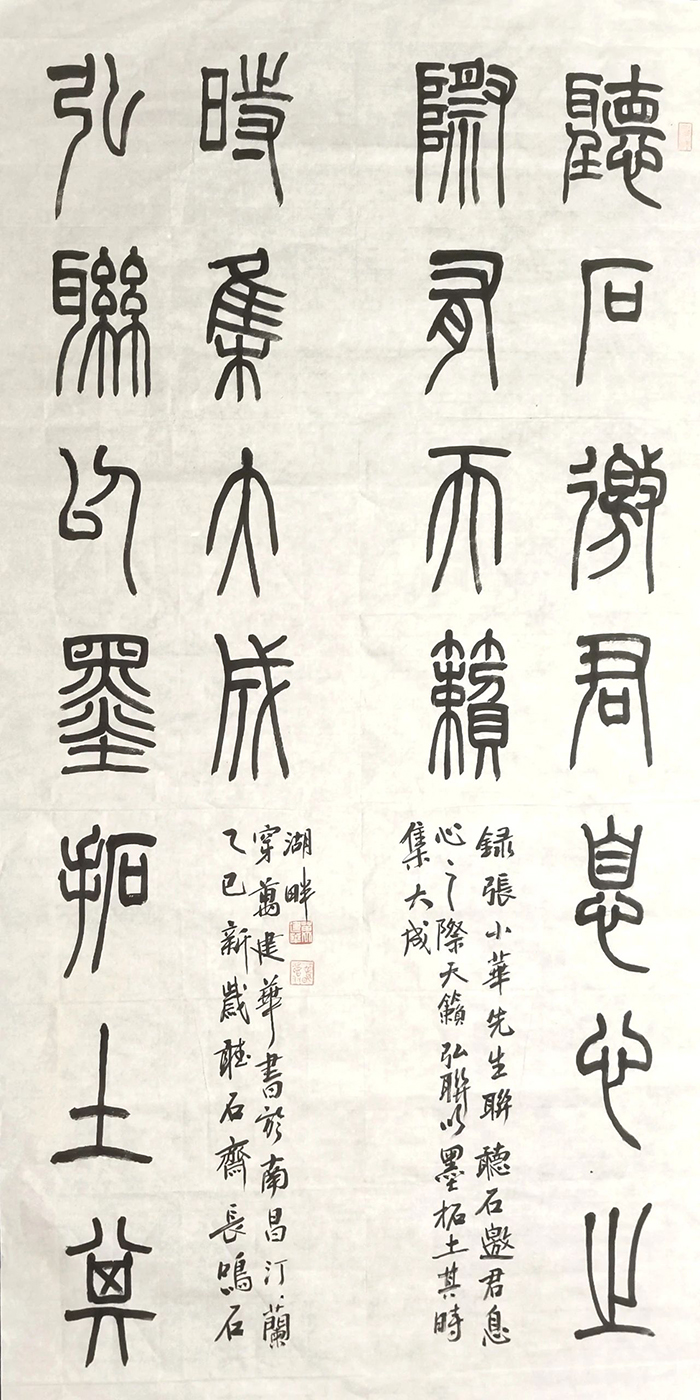 聽石邀君息心之
際有天籟
錄張小華先生聯聽石邀君息
心之際天籟弘聯以墨拓土其時
集大成
弘聯以墨拓土其
時集大成
乙巳新歲聽石齋長鳴石
穿萬建華書於南昌汀蘭
湖畔